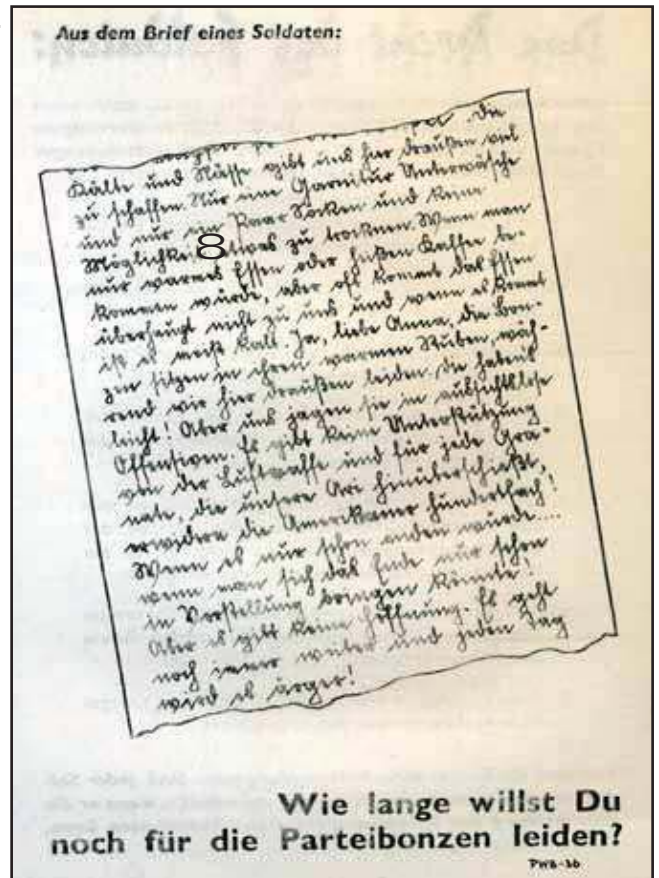 Aus dem Brief eines Soldaten:
Die
Kälte und Nässe gibt uns hier draußen viel
zu schaffen. Nur eine Garnitur Unterwäsche
und nur ein Paar Socken und keine
Möglichkeit etwas zu trocknen. Wenn man
8
nur warmes Essen oder heißen Kaffee be-
kommen würde, aber oft kommt das Essen
überhaupt nicht zu uns und wenn es kommt
ist es meist kalt. Ja, liebe Anna, die Bon-
zen sitzen in ihren warmen Stuben, wäh-
rend wir hier draußen leiden. Die haben's
leicht! Aber uns jagen sie in aussichtslose
Offensiven. Es gibt keine Unterstützung
von der Luftwaffe und für jede Gra-
nate, die unsere Ari hinüberschießt,
erwidern die Amerikaner hundertfach!
Wenn es nur schon enden würde....
wenn man sich das Ende nur schon
in Vorstellung bringen könnte!
Aber es gibt keine Hoffnung. Es geht
noch immer weiter und jeden Tag
wird es ärger!
Wie lange willst Du
noch für die Parteibonzen leiden?
PWB-36